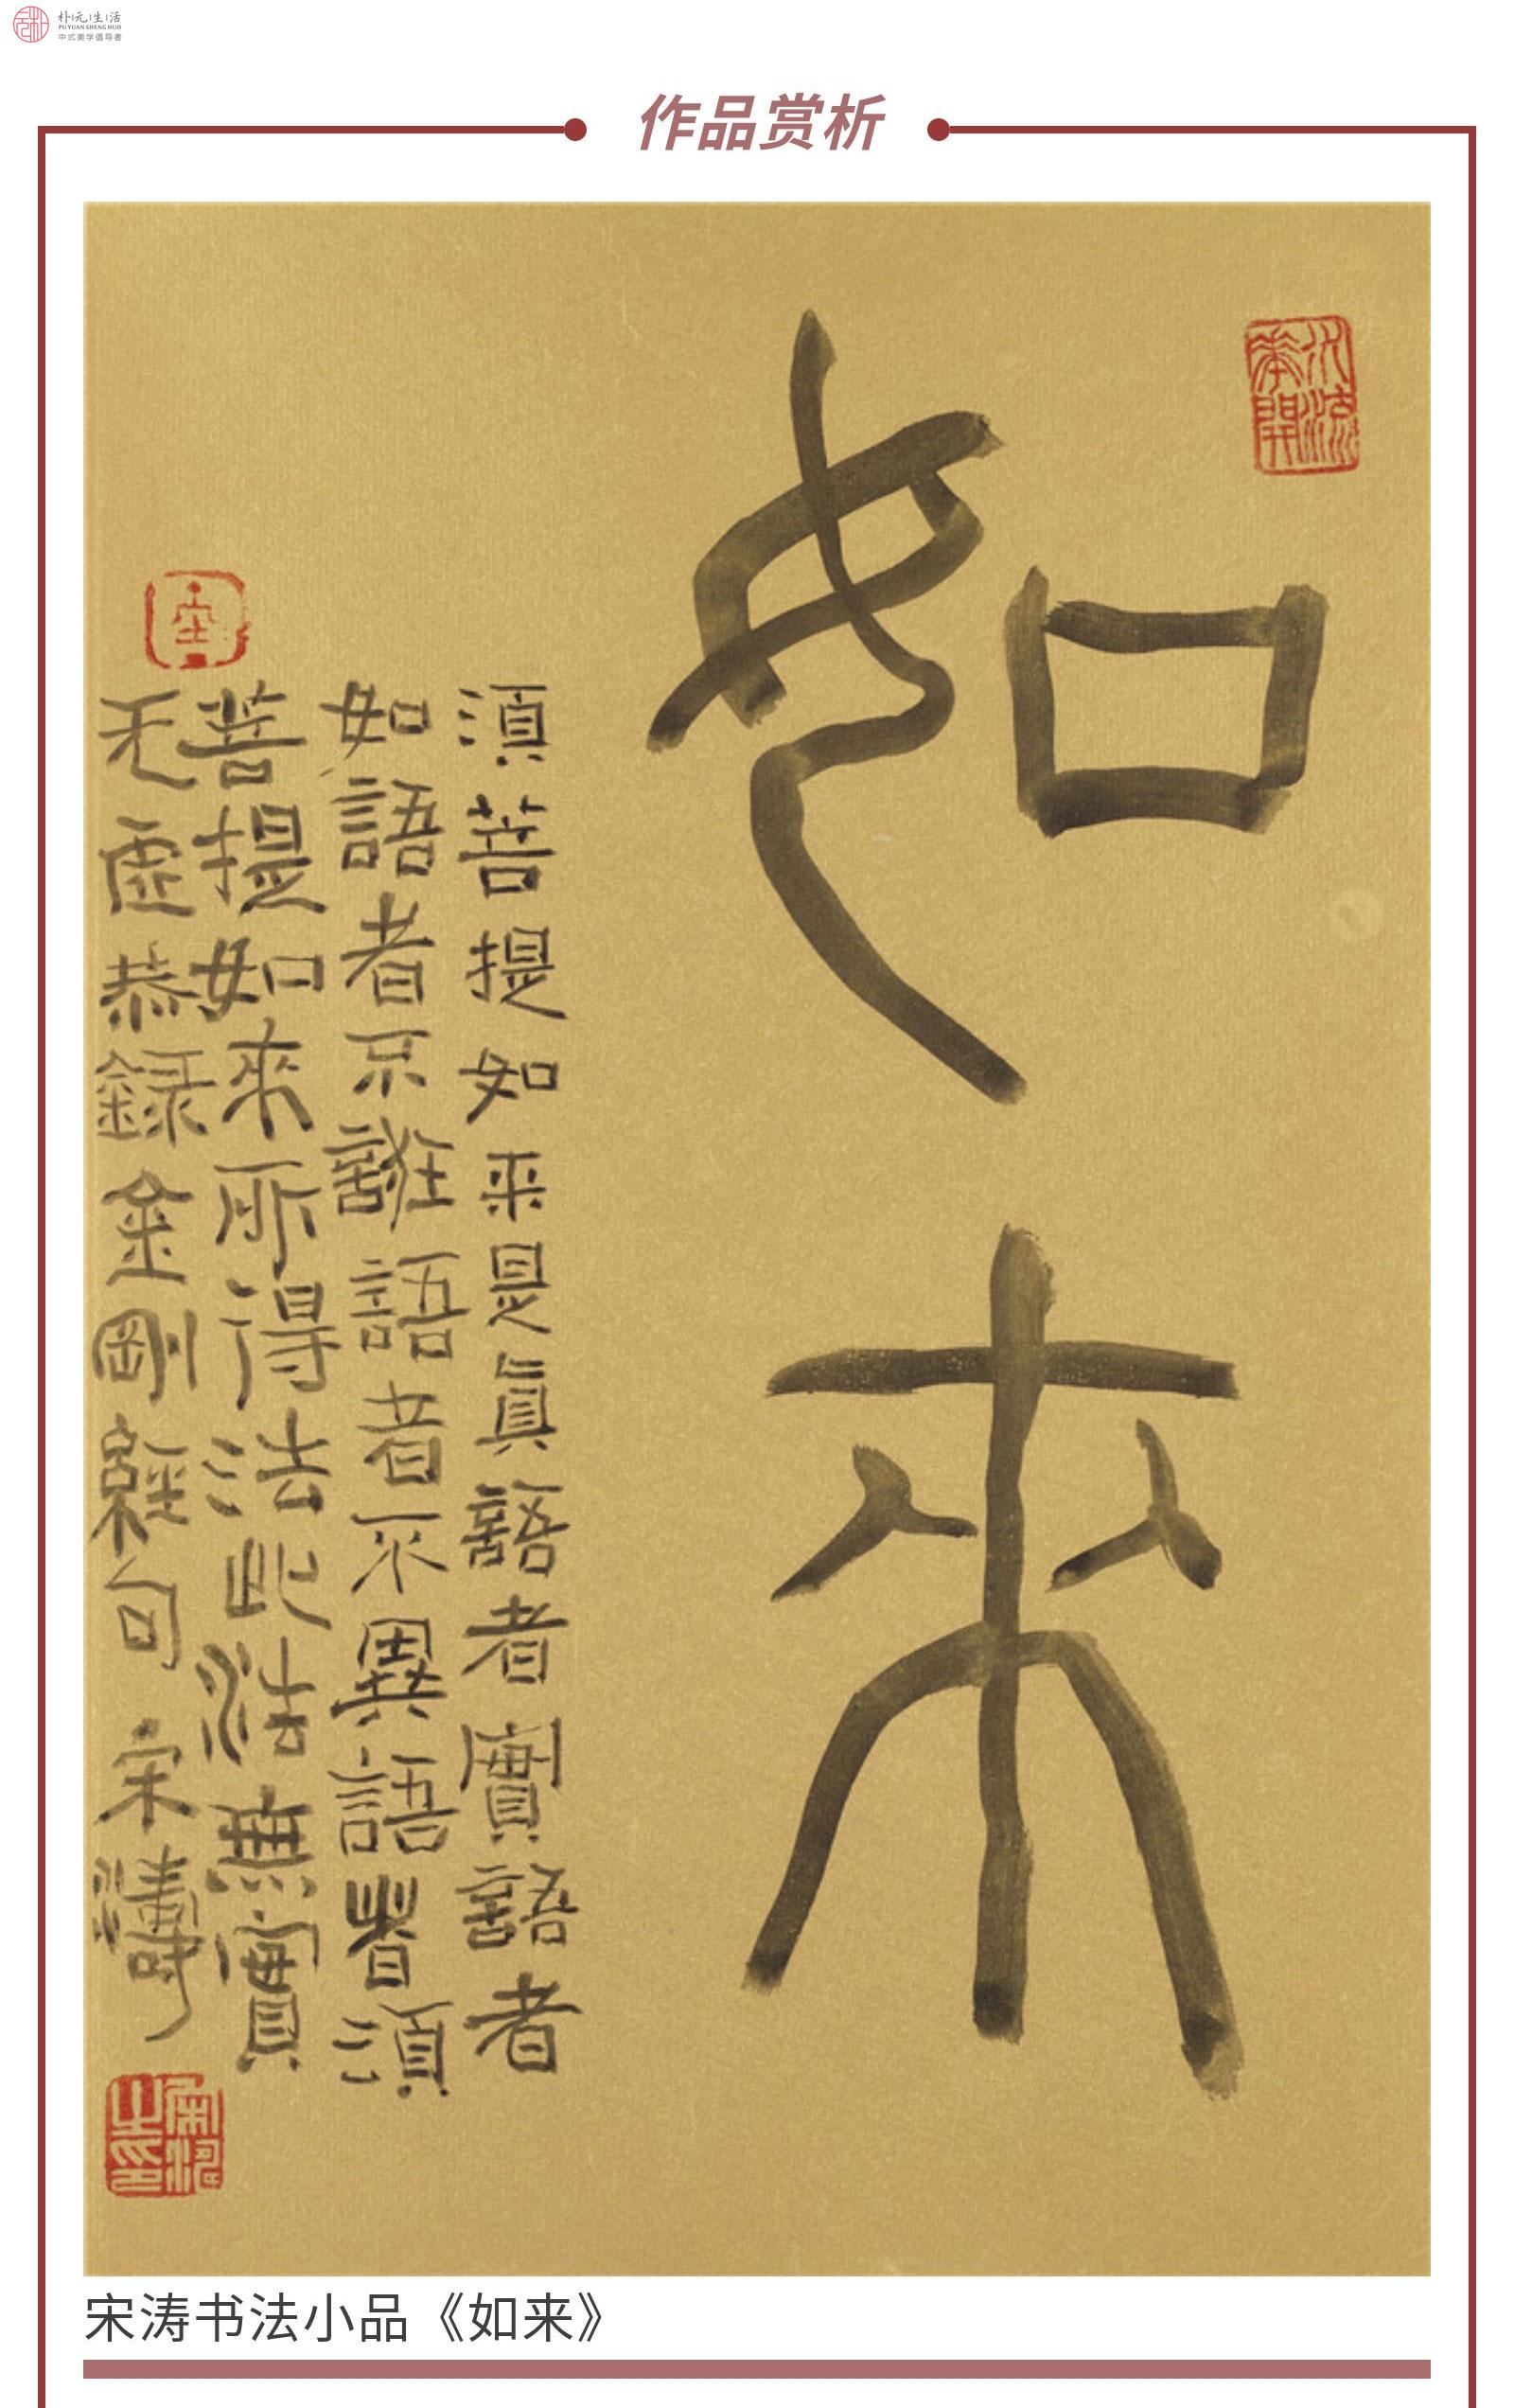 朴元生活
PU YUAN SHENG HUO
中式美学倡导者
作品赏析
水流
花開
如来
須菩提如来是真語者實語者
如語者不誑語者不異語者須
菩提如來所得法此法無實
无虛恭録金剛經句 宋濤
宋涛书法小品《如来》